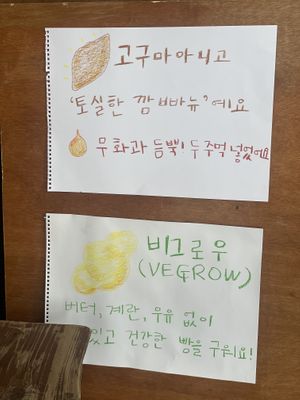 고구마아니고
'토실한 깜빠뉴'예요
무화과 듬뿍! 두 주먹 넣었어요
비그로우
(VEGROW)
버터, 계란, 우유 없이
있고 건강한 빵을 구워요!